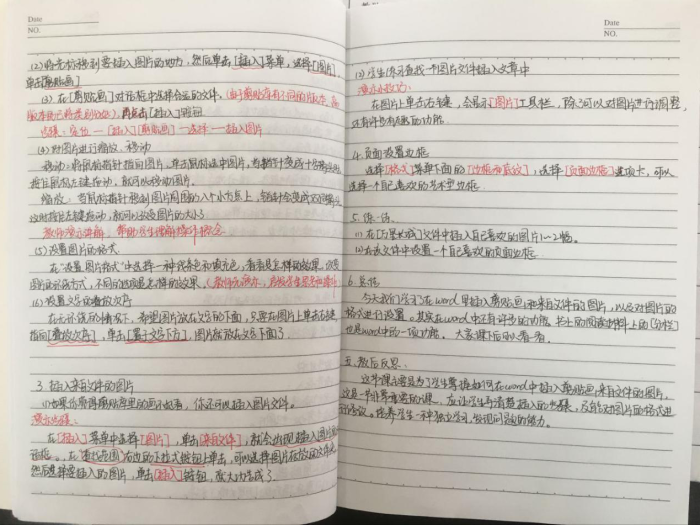 Date
NO.
(2) 将光标移到要插入图片的地方，然后单击[插入]菜单，选择[图片]，
单击[剪贴画]
(3) 在[剪贴画]对话框中选择合适的文件。
步骤：定位—[插入][剪贴画]—选择—插入图片
(4) 对图片进行缩放、移动
移动：将鼠标指针指向图片，单击鼠标选中图片，当指针变成十字
按住鼠标左键拖动，就可以移动图片。
缩放：当鼠标指针移到图片周围的八个小方点上，鼠标会变成双向
这时按住左键拖动，就可以改变图片的大小
教师演示讲解，帮助学生理解操作概念
(5) 设置图片的格式
在"设置图片格式"中选择一种线条色和填充色，看看是怎样的效果。
图片的环绕方式，不同的环绕是怎样的效果。
(6) 设置文字的叠放次序
在无环绕的情况下，希望图片放在文字的下面，只要在图片上单击右键
指向[叠放次序]，单击[置于文字下方]，图片就放在文字下面了。
3. 插入来自文件的图片
(1) 如果你觉得剪贴库里的画不好看，你还可以插入图片文件。
演示步骤：
在[插入]菜单中选择[图片]，单击[来自文件]，就会出现插入图片
话框。在"查找范围"右边的下拉式按钮上单击，可以选择图片存放的文件夹
然后选择要插入的图片，单击[插入]按钮，就大功告成了。
Date
NO.
(2) 学生练习查找一个图片文件插入文章中
在图片上单击右键，会显示[图片]工具栏，除了可以对图片进行调整，
还有许多有趣的功能。
4. 页面设置边框
选择[格式]菜单下面的[边框和底纹]，选择[页面边框]选项卡，可以
选择一个自己喜欢的艺术型边框。
5. 练一练
(1) 在《万里长城》文件中插入自己喜欢的图片1~2幅。
(2) 在该文件中设置一个自己喜欢的页面边框
6. 总结
今天我们学习了在word里插入剪贴画和来自文件的图片，以及对图片的
格式进行设置。其实在word中还有许多的功能，书上的阅读材料上的[分栏]
也是word中的一项功能。大家课下可以看一看。
五. 教后反思：
这节课主要是为了学生掌握如何在word中插入剪贴画，来自文件的图片，
这是一节非常重要的课，应让学生弄清楚插入的步骤，及能对图片的格式进
行修改。培养学生一种独立学习，发现问题的能力。